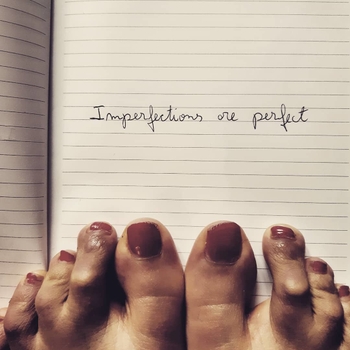 Imperfections are perfect